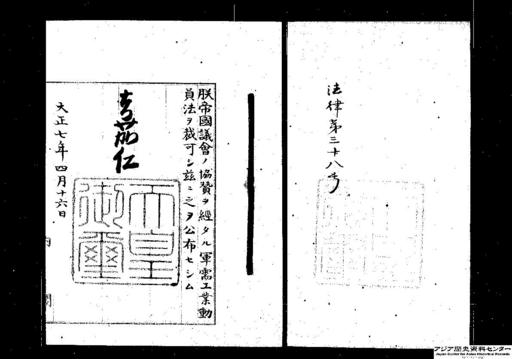 法律第三十八号
朕帝國議會ノ協贊ヲ經タル軍需工業動
員法ヲ裁可シ茲ニ之ヲ公布セシム
嘉仁
天皇御璽
大正七年四月十六日
内
閣
アジア歴史資料センター
Japan Center for Asian Historical Records